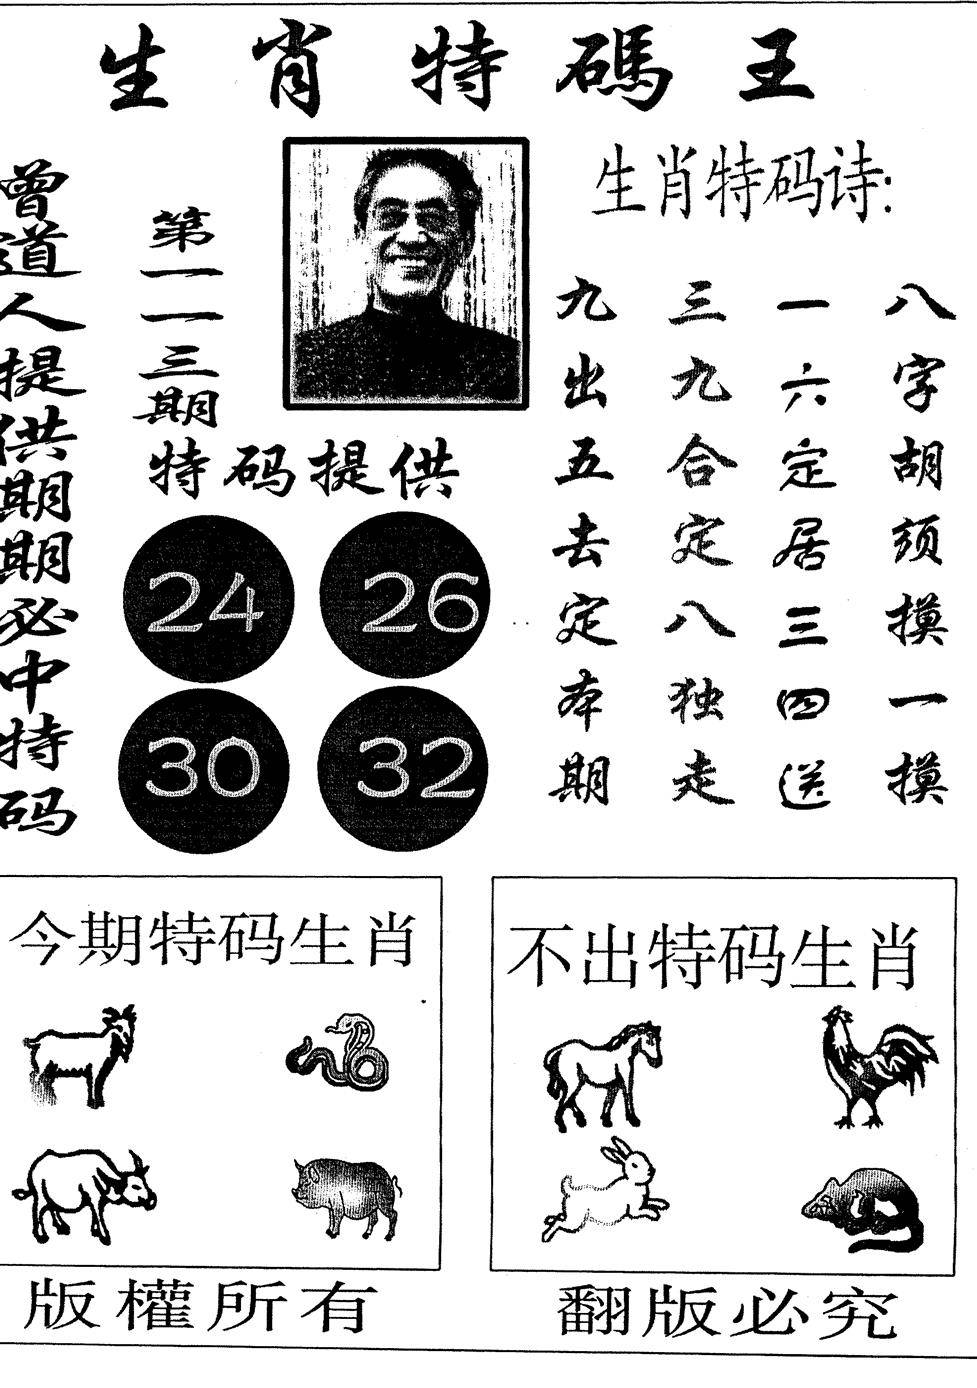 生肖特碼王
曾道人提供期期必中特码
第一一三期
特码提供
24 26
30 32
生肖特码诗:
八字胡须摸一摸
一六定居三四送
三九合定八独走
九出五去定本期
今期特码生肖
不出特码生肖
版權所有
翻版必究